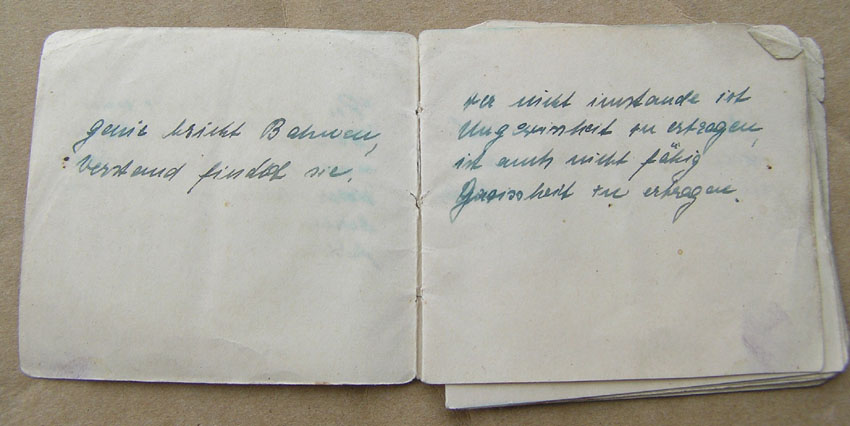 Genie bricht Bahnen,
Verstand findet sie.
Wer nicht imstande ist
Ungewissheit zu ertragen,
ist auch nicht fähig
Gewissheit zu ertragen.